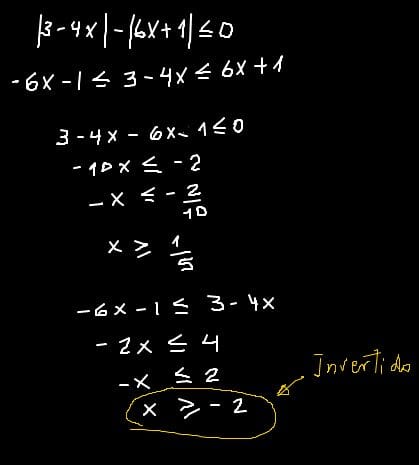 |3-4x|-|6x+1|≤0
-6x-1≤3-4x≤6x+1
3-4x-6x-1≤0
-10x≤-2
-x≤-2/10
x≥1/5
-6x-1≤3-4x
-2x≤4
-x≤2
x≥-2
Invertido